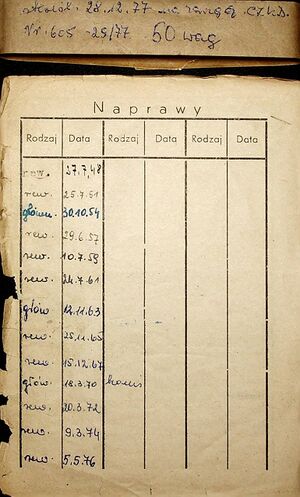 28.12.77
Nr. 605 - 25/77 50 wag
Naprawy
Rodzaj Data Rodzaj Data Rodzaj Data
rew. 27.7.48
rew. 25.7.51
główn. 30.10.54
rew. 29.6.57
rew. 10.7.59
rew. 24.7.61
głów 12.11.63
rew. 25.11.65
rew. 15.12.67
głów. 18.3.70
rew. 20.3.72
rew. 9.3.74
rew. 5.5.76